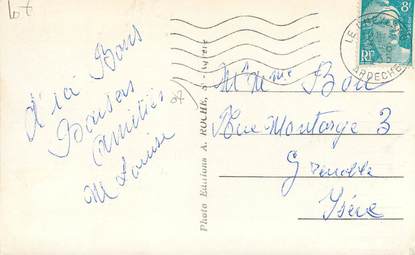 D'ici Bons
Baisers
Amitiés
M Louise
Photo Editions A. ROCHE,
RF
8F
ARDECHE
Mr Mme Bon
Rue Montorge 3
Grenoble
Isère